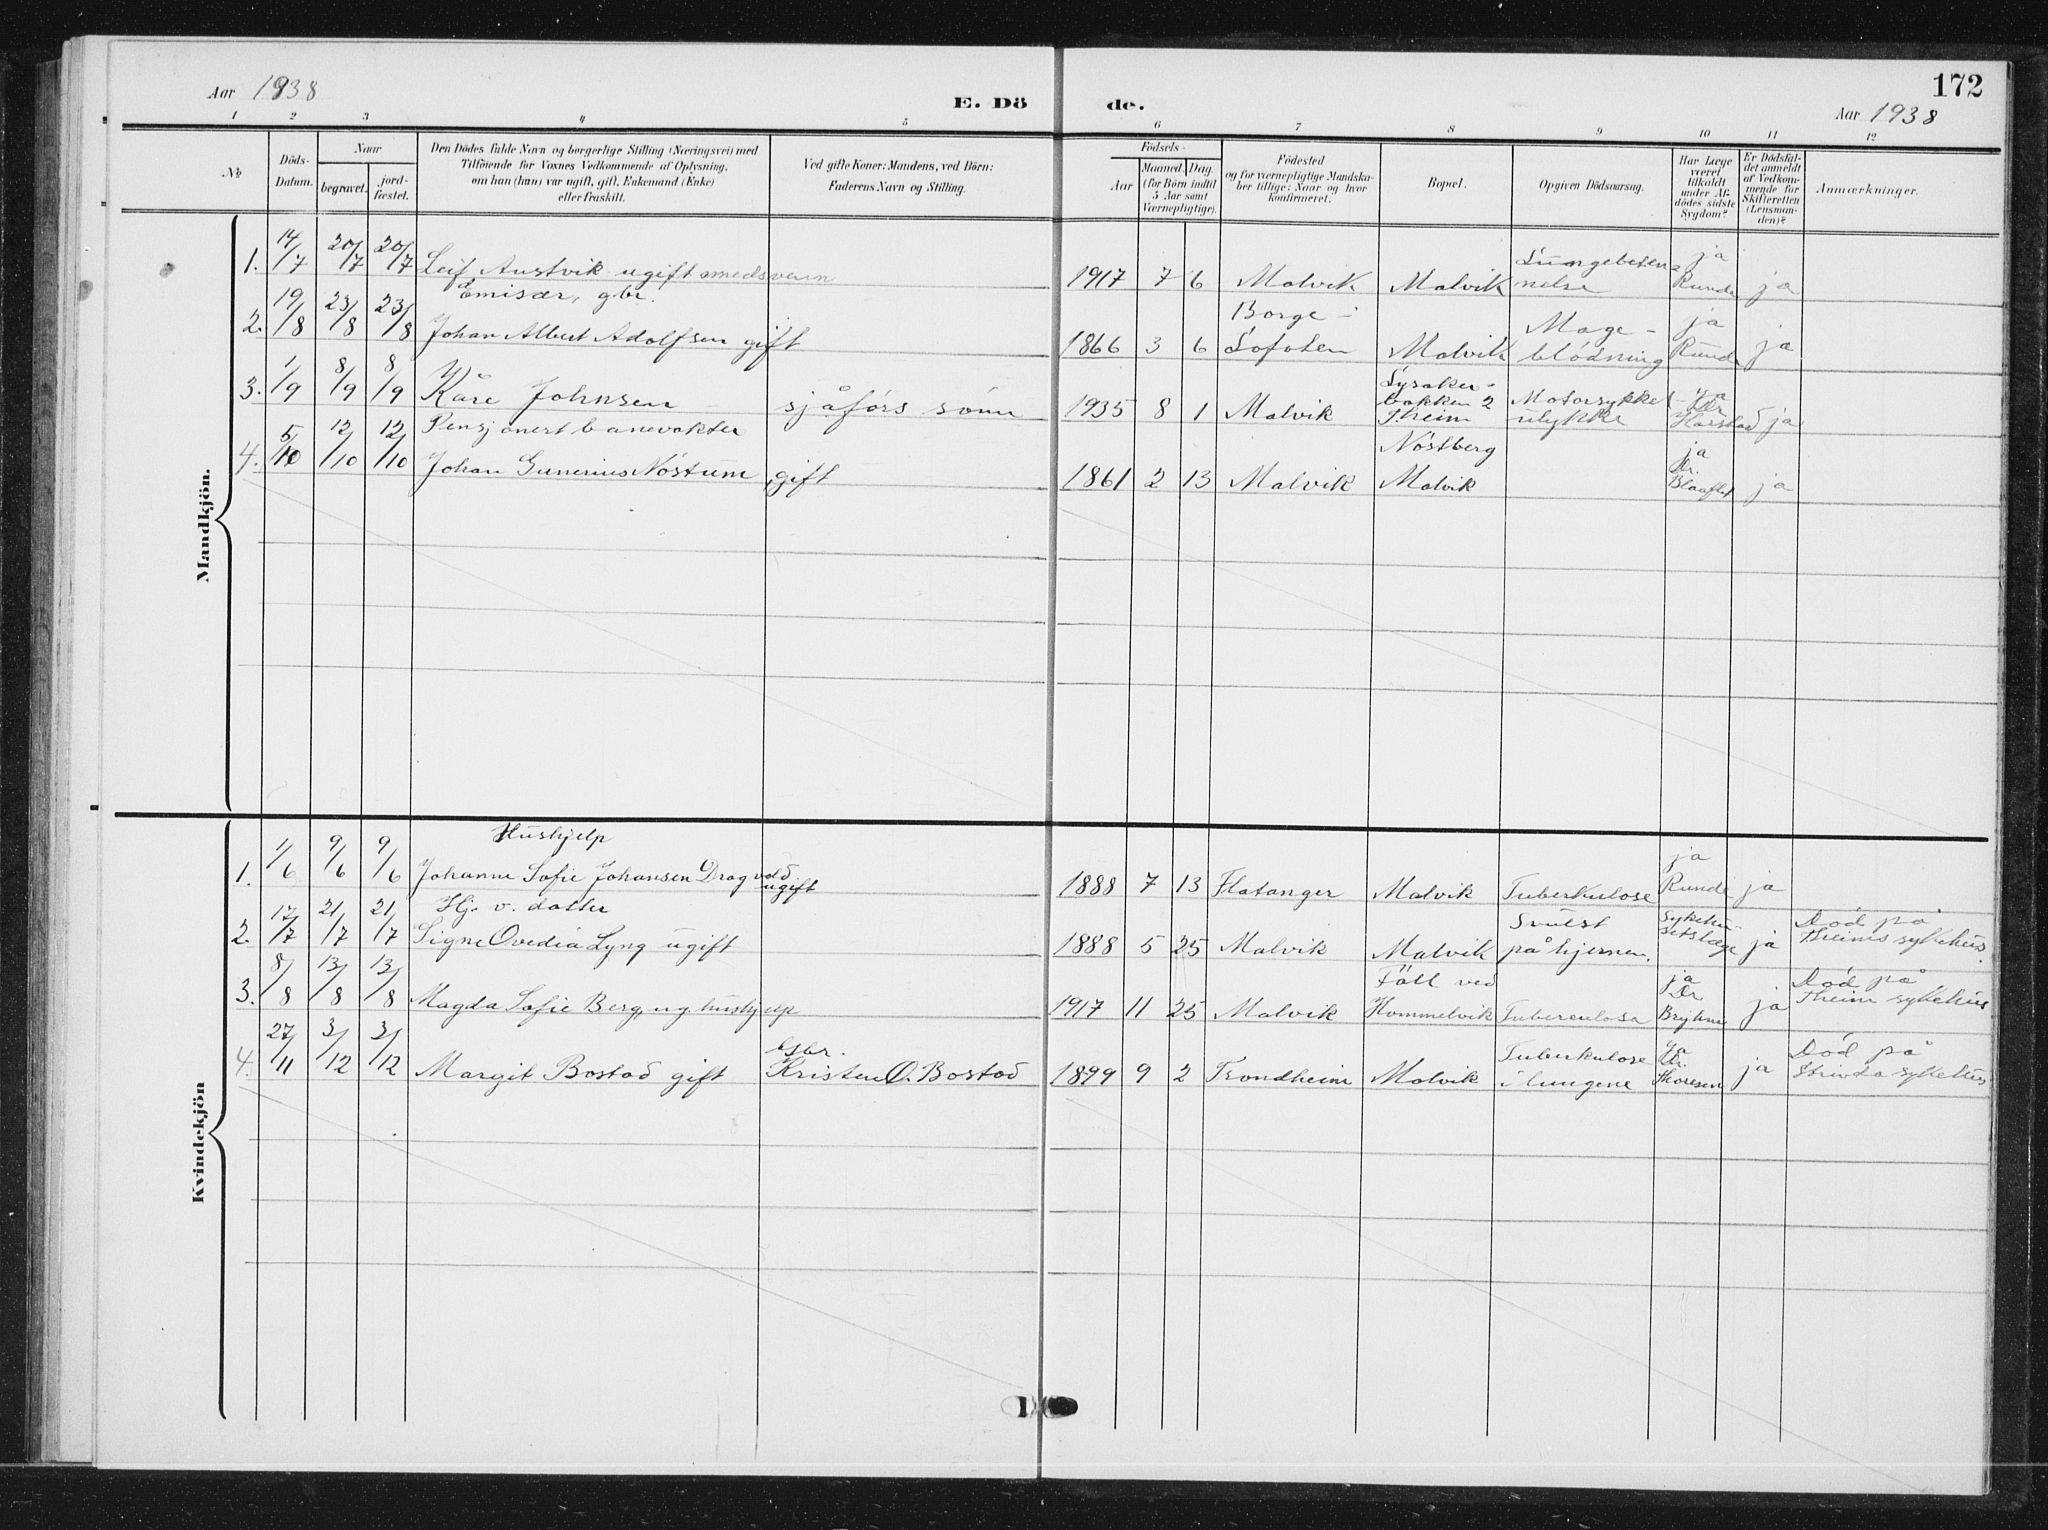 172
Aar 1938
E. Dö de.
Aar 1938
1 2 3 4 5 6 7 8 9 10 11 12
№
Döds-
Datum.
Naar
begravet.
jord-
fæstet.
Den Dödes fulde Navn og borgerlige Stilling (Næringsvei) med
Tilföiende for Voxnes Vedkommende af Oplysning,
om han (hun) var ugift, gift, Enkemand (Enke)
eller fraskilt.
Ved gifte Koner: Mandens, ved Börn:
Faderens Navn og Stilling.
Födsels-
Aar
Maaned.
Dag.
(for Börn indtil
5 Aar samt
Værnepligtige).
Födested
og for værnepligtige Mandska-
ber tillige: Naar og hvor
konfirmeret.
Bopæl.
Opgiven Dödsaarsag.
Har Læge
været
tilkaldt
under Af-
dödes sidste
Sygdom?
Er Dödsfal-
det anmeldt
af Vedkom-
mende for
Skifteretten
(Lensman-
den)?
Anmærkninger.
Mandkjön.
1. 14/7 20/7 20/7 Leif Austvik ugift smedsvenn 1917 7 6 Malvik Malvik Lungebeten=
nelse ja
Runde ja
Emisær, gbr.
2. 19/8 23/8 23/8 Johan Albert Adolfsen gift 1866 3 6 Borge i
Lofoten Malvik Mage-
blödning ja
Runde ja
3. 1/9 8/9 8/9 Kåre Johnsen sjåførs sönn 1935 8 1 Malvik Lysaker-
bakken 2
T.heim Motorsykkel-
ulykke ja
Dr
Harstad ja
Pensjonert banevokter
4. 5/10 12/10 12/10 Johan Gunerius Nöstum gift 1861 2 13 Malvik Nöstberg
Malvik ja
Dr.
Blaaflat ja
Kvindekjön
Hushjelp
1. 1/6 9/6 9/6 Johanne Sofie Johansen Dragvold
ugift 1888 7 13 Flatanger Malvik Tuberkulose ja
Runde ja
Hj. v. datter
2. 17/7 21/7 21/7 Signe Ovedia Lyng ugift 1888 5 25 Malvik Malvik Svulst
på hjernen. Sykehu-
setslæge ja Död på
Theims sykehus.
3. 8/8 13/8 13/8 Magda Sofie Berg, ug. hushjelp 1917 11 25 Malvik Fall ved
Hommelvik Tuberculosa ja
Dr
Bryhn ja Död på
Theim sykehus
4. 27/11 3/12 3/12 Margit Bostad gift gbr.
Kristen O. Bostad 1899 9 2 Trondheim Malvik Tuberkulose
i lungene ja
Dr.
Thoresen ja Död på
Strinda sykehus